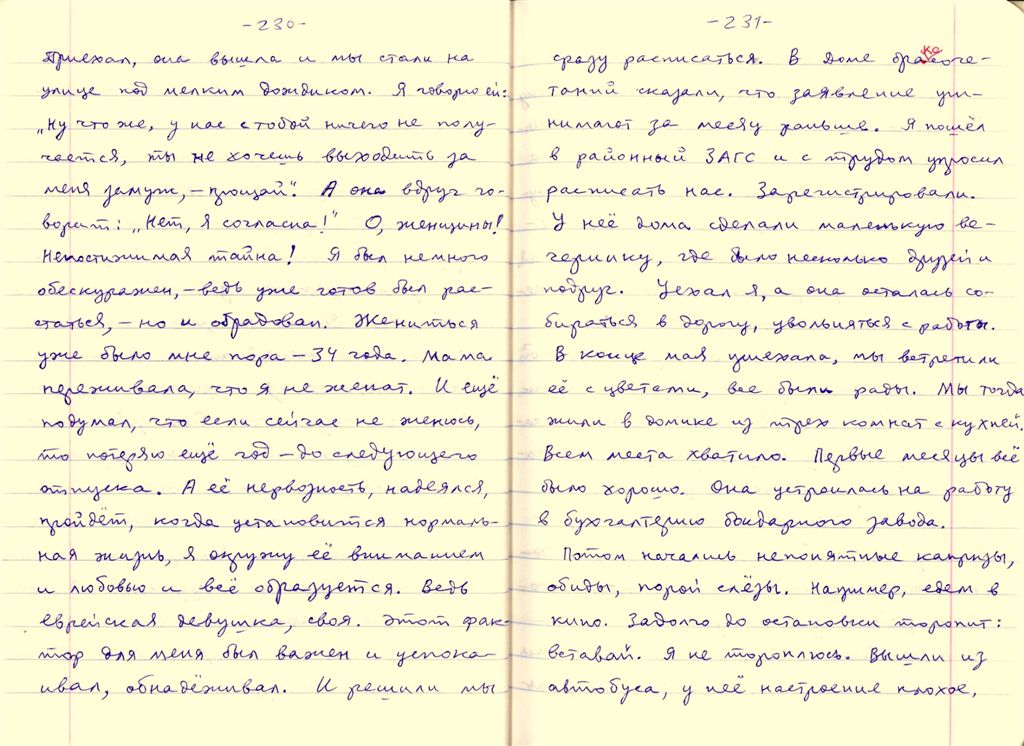 -230-
Приехал, она вышла и мы стали на
улице под мелким дождиком. Я говорю ей:
„Ну что же, у нас с тобой ничего не полу-
чается, ты не хочешь выходить за
меня замуж, – прощай". А она вдруг го-
ворит: „Нет, я согласна!" О, женщины!
Непостижимая тайна! Я был немного
обескуражен, – ведь уже готов был рас-
статься, – но и обрадован. Жениться
уже было мне пора – 34 года. Мама
переживала, что я не женат. И ещё
подумал, что если сейчас не женюсь,
то потеряю ещё год – до следующего
отпуска. А её нервозность, надеялся,
пройдёт, когда установится нормаль-
ная жизнь, я окружу её вниманием
и любовью и всё образуется. Ведь
еврейская девушка, своя. Этот фак-
тор для меня был важен и успока-
ивал, обнадёживал. И решили мы
-231-
сразу расписаться. В Доме бракосоче-
таний сказали, что заявление при-
нимают за месяц раньше. Я пошёл
в районный ЗАГС и с трудом упросил
расписать нас. Зарегистрировали.
У неё дома сделали маленькую ве-
черинку, где было несколько друзей и
подруг. Уехал я, а она осталась со-
бираться в дорогу, увольняться с работы.
В конце мая приехала, мы встретили
её с цветами, все были рады. Мы тогда
жили в домике из трех комнат с кухней.
Всем места хватило. Первые месяцы всё
было хорошо. Она устроилась на работу
в бухгалтерию бондарного завода.
Потом начались непонятные капризы,
обиды, порой слёзы. Например, едем в
кино. Задолго до остановки торопит:
вставай. Я не тороплюсь. Вышли из
автобуса, у неё настроение плохое,